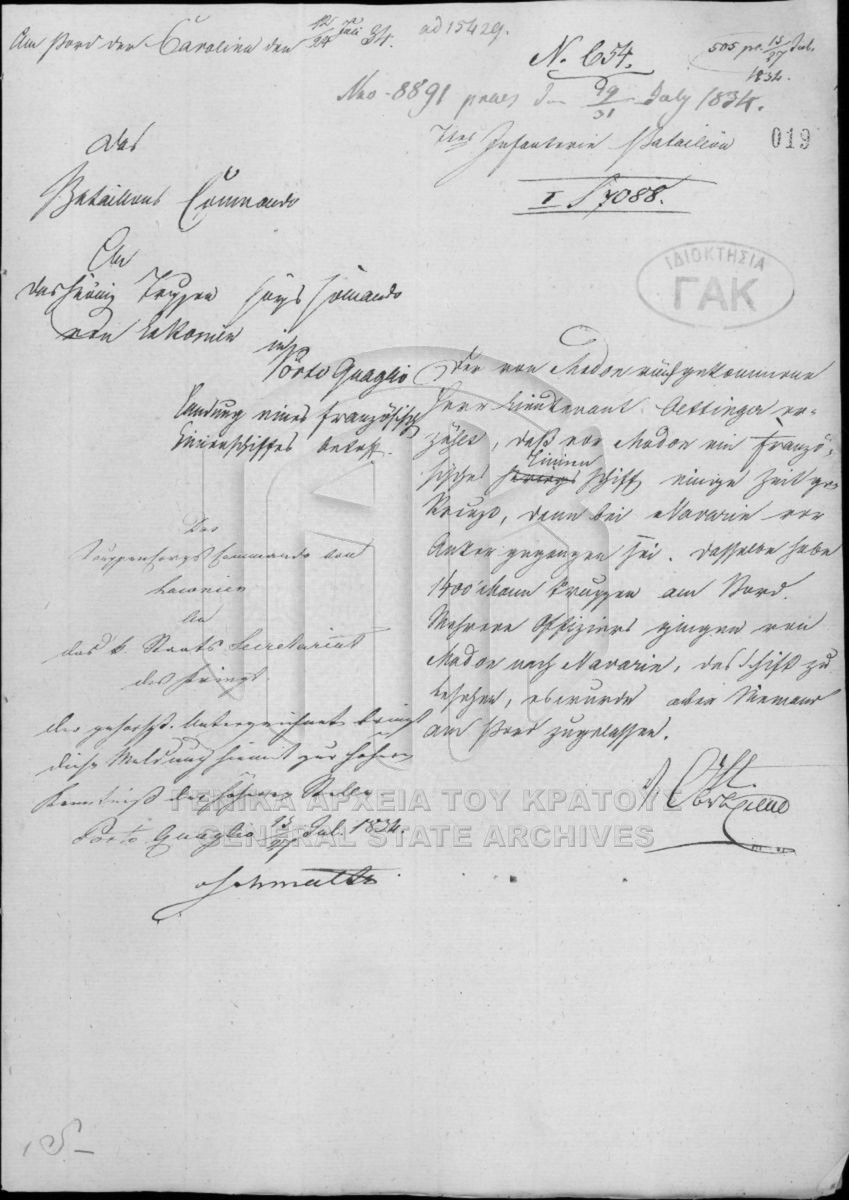 Am Bord der Carolina den 12/24 Juli 34.
ad 15429.
N. 654.
505 pr. 15/27 Jul.
1834.
Nro 8891 praes den 19/31 July 1834.
7tes Infanterie Bataillon
019
I 7088.
Das
Bataillons Commando
An
das königl. Truppen Corps Comando
von Lakonien in
Porto Quaglio
Landung eines französisch.
Linienschiffes betreff.
ΙΔΙΟΚΤΗΣΙΑ
ΓΑΚ
Der von Modon rückgekommene
Herr Lieutenant Oettinger er-
zählt, daß vor Modon ein Französ-
sisches Kriegs Linien Schiff einige Zeit ge-
kreuzt, dann bei Navarin vor
Anker gegangen sei. Dasselbe habe
1400 Mann Truppen am Bord.
Mehrere Offiziers gingen von
Modon nach Navarin, das Schiff zu
besehen, es wurde aber Niemand
am Bord zugelassen.
Das
Truppencorps Commando von
Laconien
An
das k. Staats Secretariat
des Kriegs.
Der gehorsamst Unterzeichnete bringt
diese Meldung hiemit zur hohen
Kenntniß der höhern Stelle
Porto Quaglio 15/27 Jul. 1834.
Schmaltz
ΓΕΝΙΚΑ ΑΡΧΕΙΑ ΤΟΥ ΚΡΑΤΟΥΣ
GENERAL STATE ARCHIVES